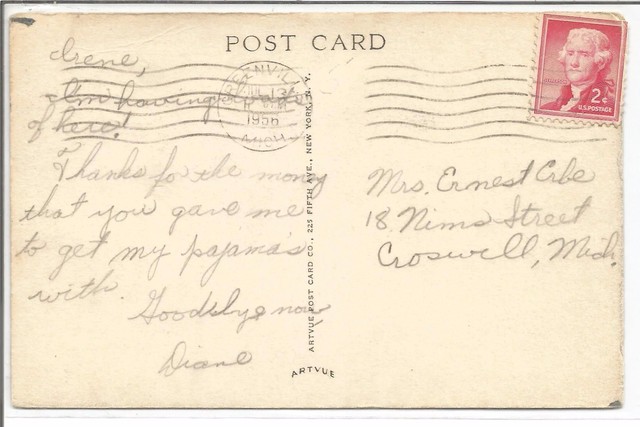 POST CARD
Irene,
I'm having
of here!
Thanks for the money
that you gave me
to get my pajama's
with.
Goodbye now
Diane
JUL 13
1956
MICH
2¢
U.S. POSTAGE
Mrs. Ernest Erbe
18 Nims Street
Croswell, Mich.
ARTVUE POST CARD CO., 225 FIFTH AVE., NEW YORK, N. Y.
ARTVUE